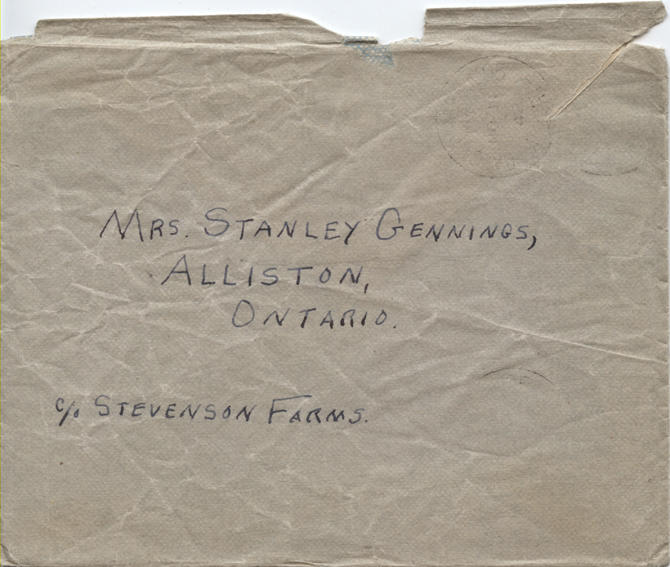 Mrs. Stanley Gennings,
Alliston,
Ontario.
c/o Stevenson Farms.